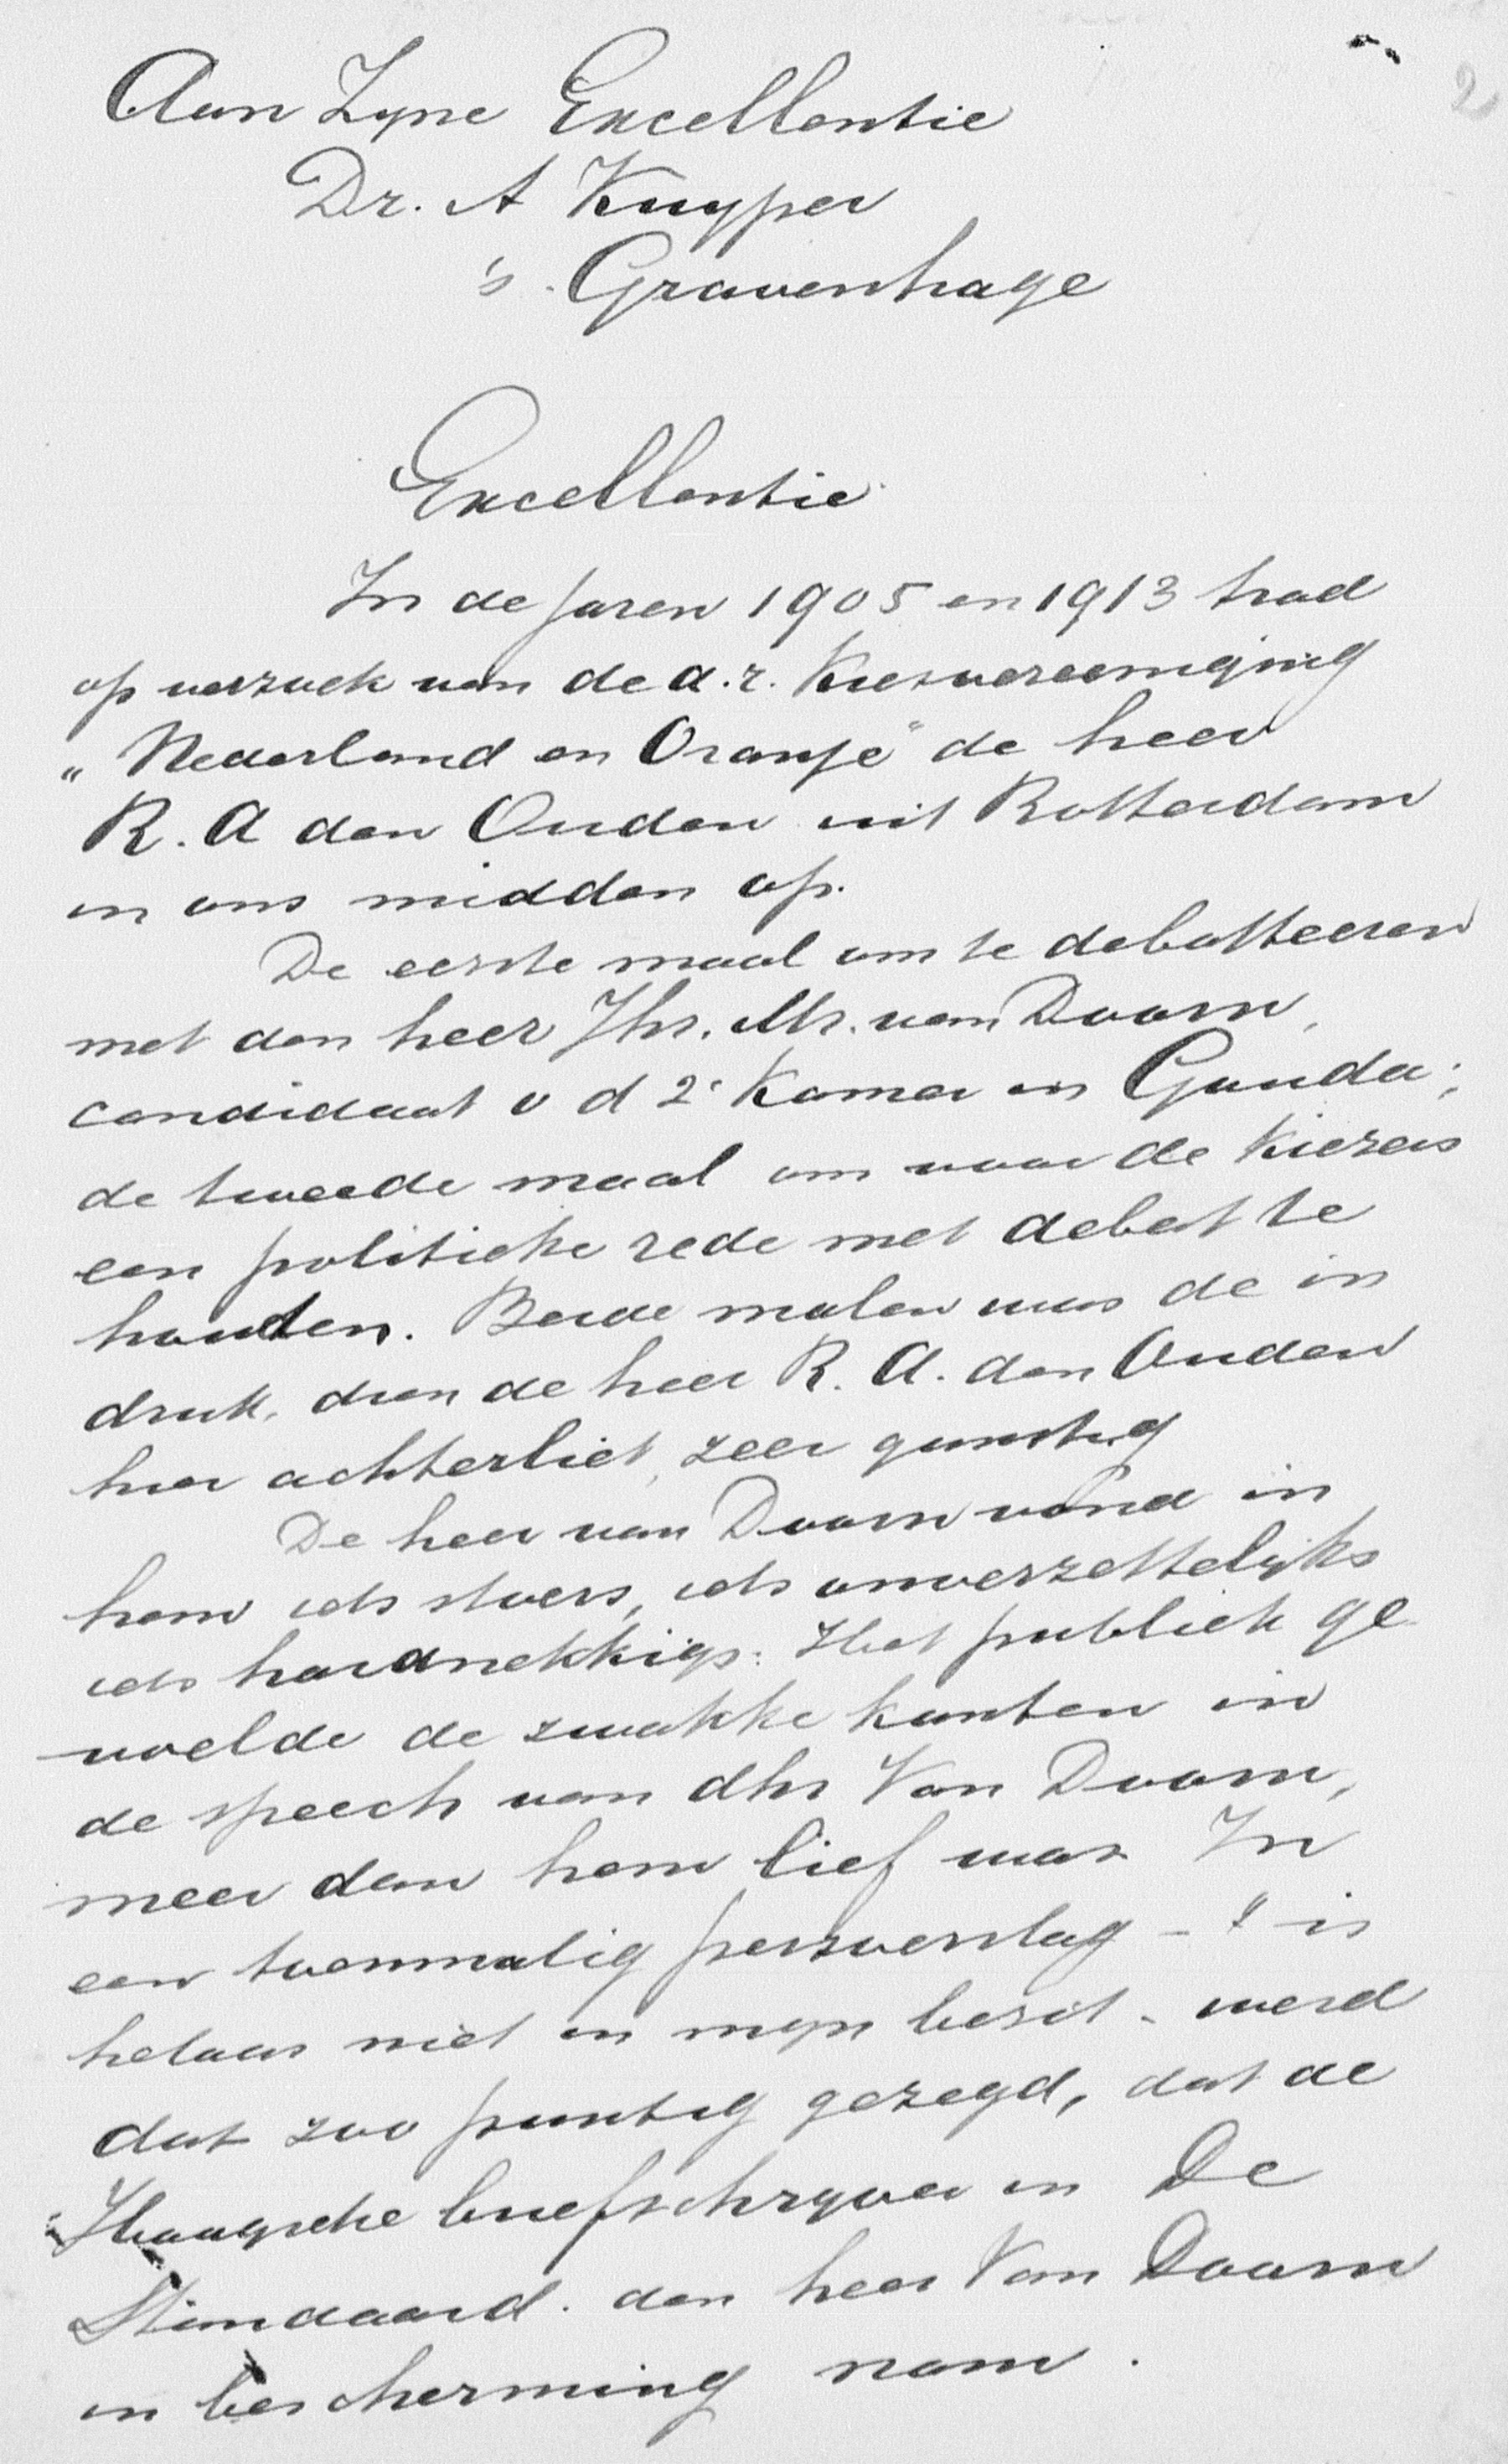 2
Aan Zyne Excellentie
Dr. A Kuyper
's-Gravenhage
Excellentie
In de jaren 1905 en 1913 trad
op verzoek van de a.r. Kiesvereeniging
„Nederland en Oranje" de heer
R. A den Ouden uit Rotterdam
in ons midden op.
De eerste maal om te debatteeren
met den heer Jhr. Mr. van Doorn,
candidaat v d 2e Kamer in Gouda;
de tweede maal om voor de kiezers
een politieke rede met debat te
houden. Beide malen was de in
druk, dien de heer R. A. den Ouden
hier achterliet, zeer gunstig
De heer van Doorn vond in
hem iets stoers, iets onverzettelijks
iets hardnekkigs. Het publiek ge
voelde de zwakke kanten in
de speech van dhr Van Doorn,
meer dan hem lief was. In
een toenmalig persverslag - 't is
helaas niet in myn bezit - werd
dat zoo puntig gezegd, dat de
Haagsche briefschryver in De
Standaard. den heer Van Doorn
in bescherming nam.